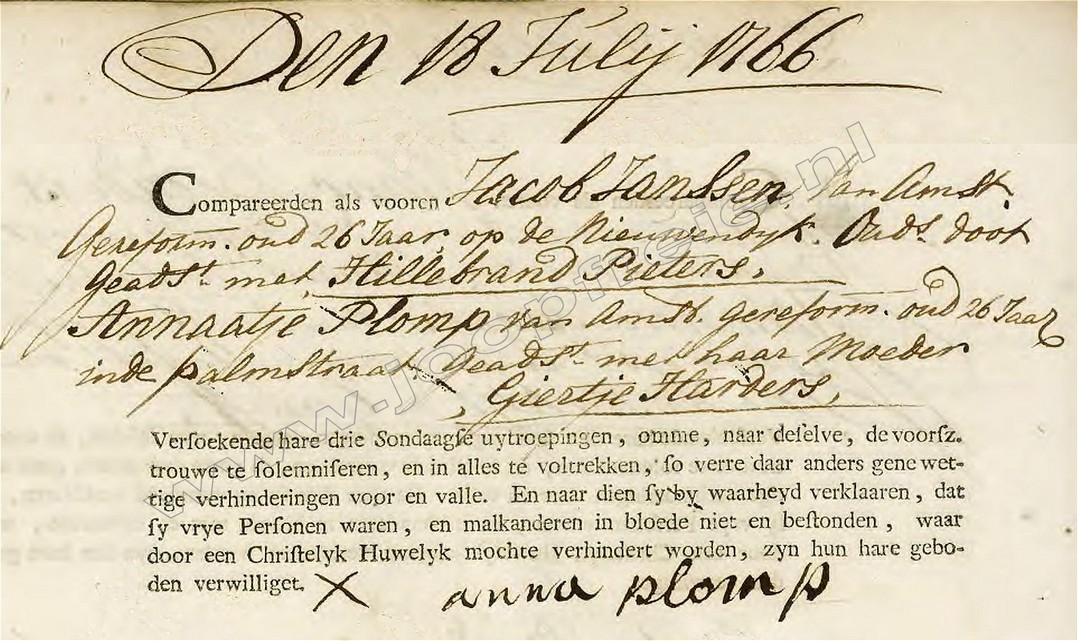 Den 18 Julij 1766
Compareerden als vooren Jacob Janssen van Amst.
Gereform. oud 26 Jaar, op de Nieuwendyk. Ouds. doot
geadst. met Hillebrand Pieters,
Annaatje Plomp van Amst. gereform. oud 26 Jaar
inde palmstraat. Geadst. met haar Moeder
Giertje Harders,
Verſoekende hare drie Sondaagſe uytroepingen, omme, naar deſelve, de voorſz.
trouwe te ſolemniſeren, en in alles te voltrekken, ſo verre daar anders gene wet-
tige verhinderingen voor en valle. En naar dien ſy by waarheyd verklaaren, dat
ſy vrye Perſonen waren, en malkanderen in bloede niet en beſtonden, waar
door een Chriſtelyk Huwelyk mochte verhindert worden, zyn hun hare gebo-
den verwilliget. X anna plomp
www.joopfreie.nl